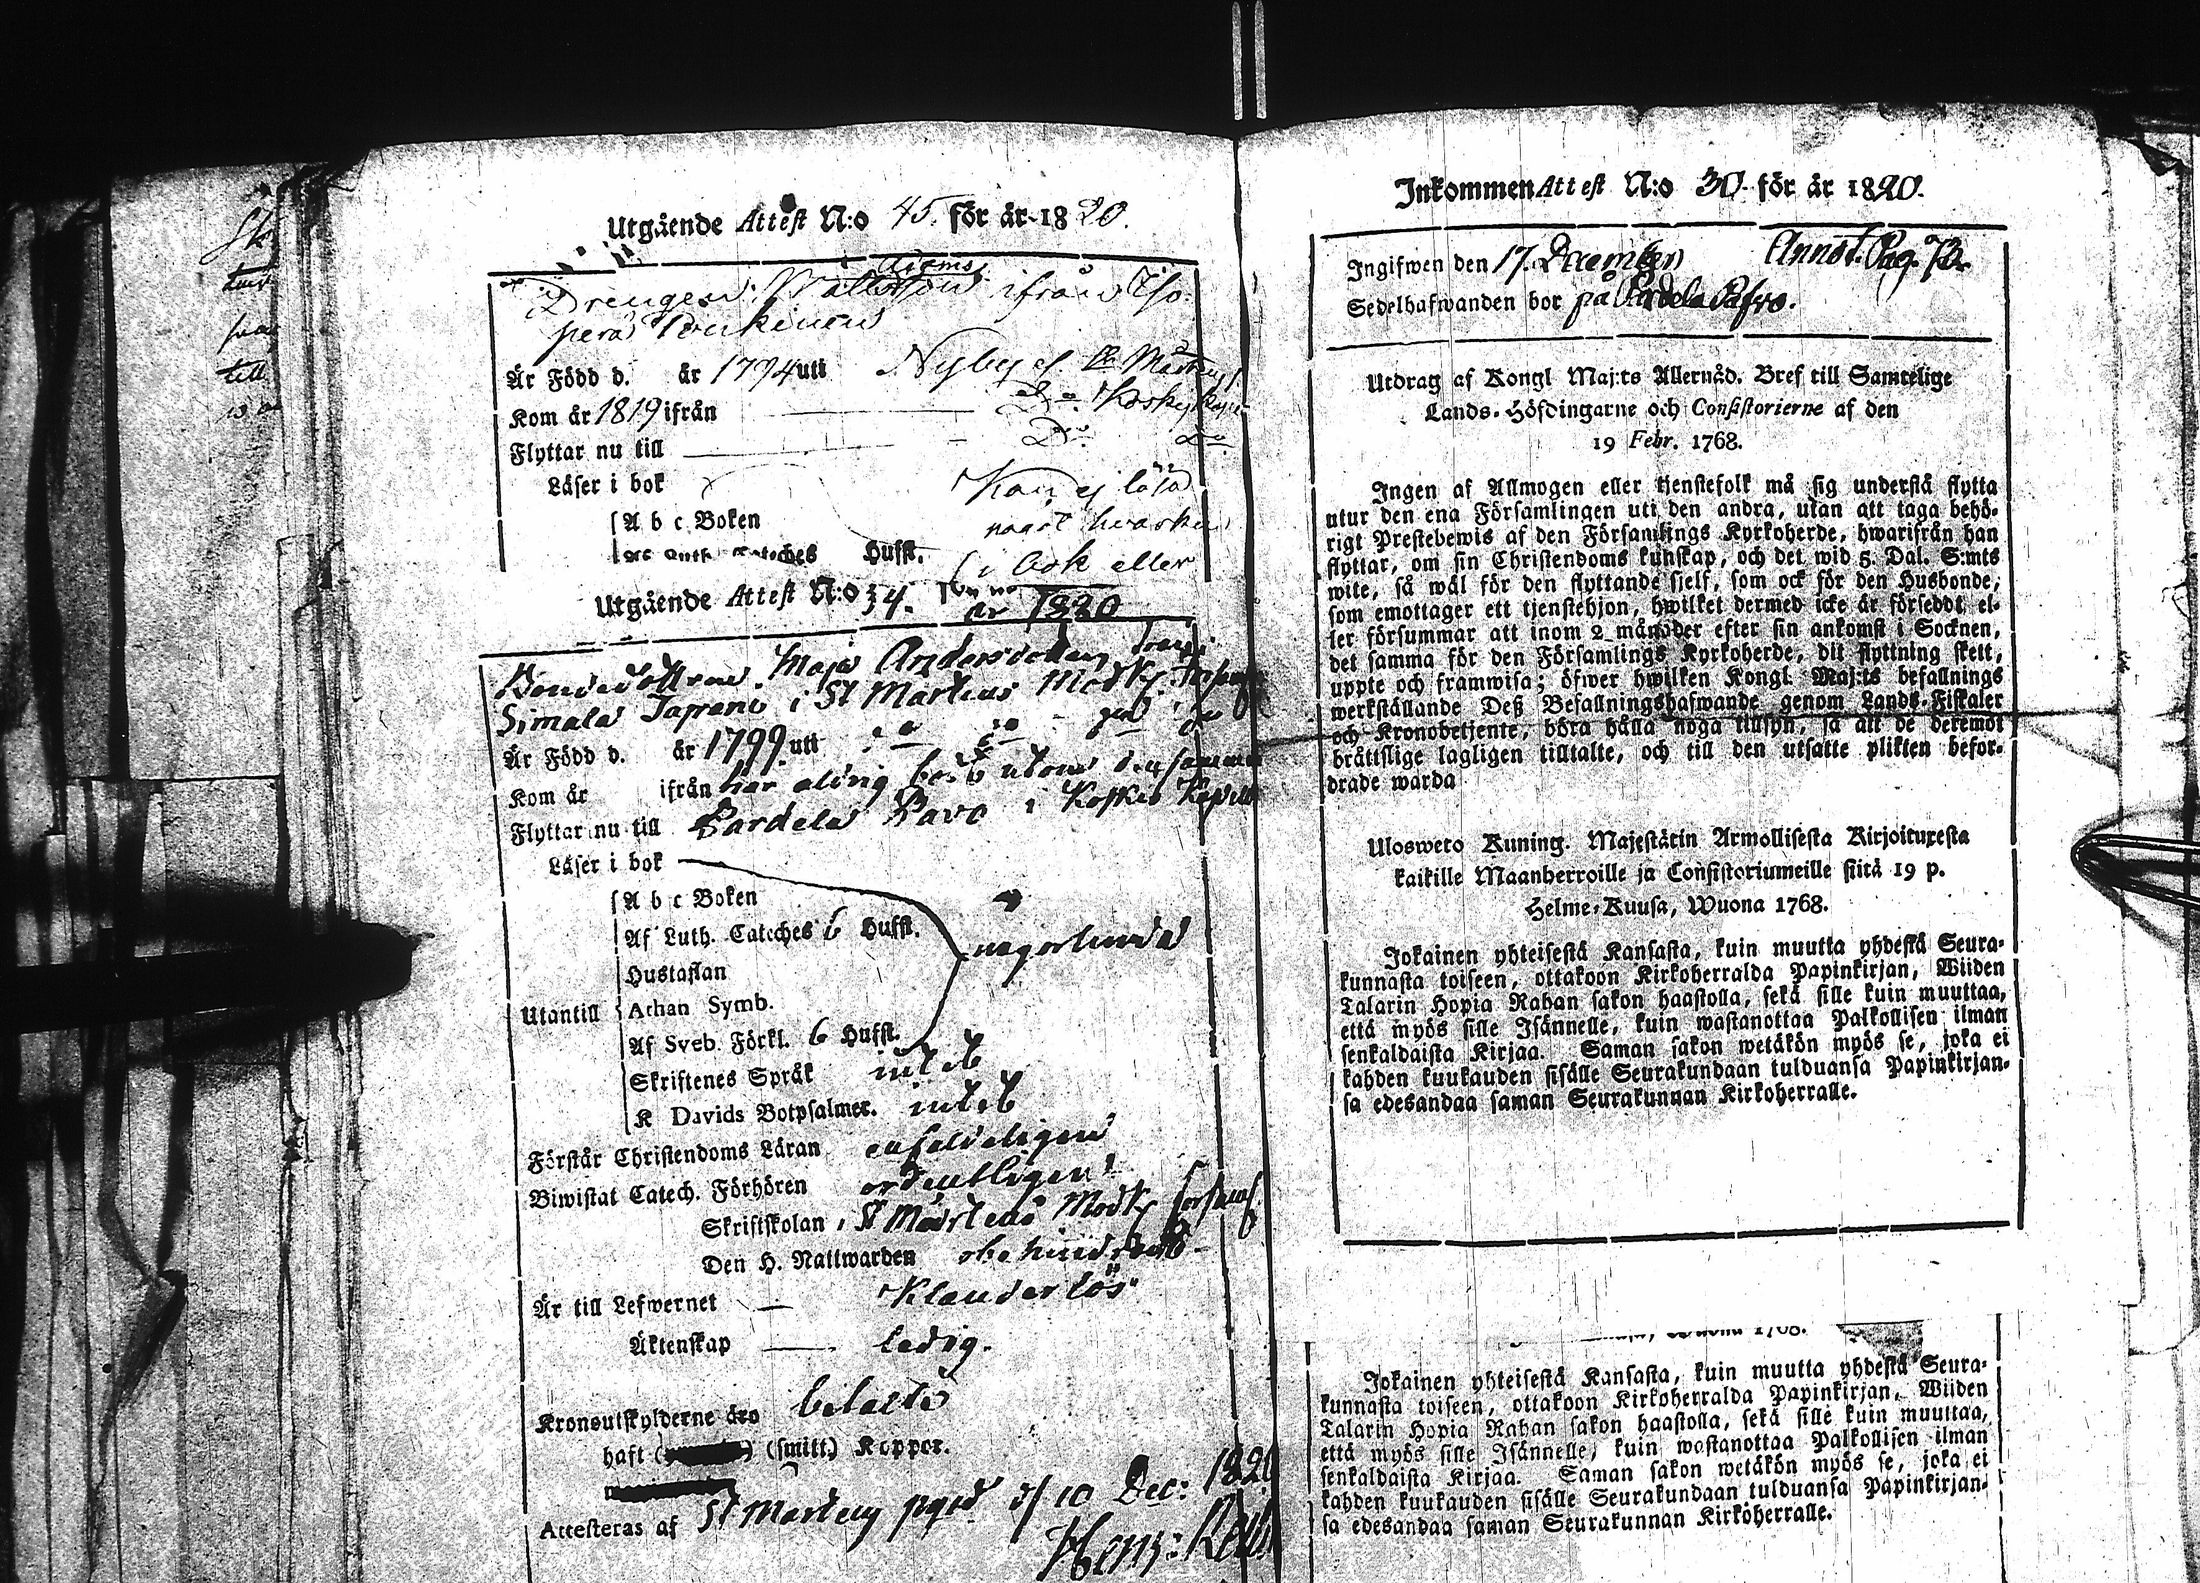 Utgående Attest N:o 45. för år 1820.
Drengen ifrån
Är Född d. år 1794 uti Nyby
Kom år 1819 ifrån
Flyttar nu till Do. Do.
Läser i bok Kan ej läsa
A b c Boken hvarken
Af Luth. Cateches Hufst. i bok eller
Utgående Attest N:o 34. år 1820
Bondedottren Maja Andersdotter från
Simala Tapani i St Mårtens Modk.
Är Född d. år 1799 uti
Kom år ifrån har aldrig bodt utom
Flyttar nu till Pardela Pavo i Koskis Capell
Läser i bok
A b c Boken
Af Luth. Cateches 6 Hufst.
någorlunda
Hustaflan
Utantill Athan Symb.
Af Sveb. Förkl. 6 Hufst.
Skriftenes Språk intet
K Davids Botpsalmer. intet
Förstår Christendoms Läran enfaldeligen
Biwistat Catech. Förhören ordentligen
Skriftskolan i St Mårtens Modk. församl.
Den H. Nattwarden obehindrad
Är till Lefwernet Klanderlös
Äktenskap ledig.
Kronoutskylderne äro betalte
haft (smitt.) Koppor.
Attesteras af St Martens d/ 10 Dec: 1820
Inkommen Attest N:o 30 för år 1820.
Ingifwen den 17. December Annot. Pag. 73.
Sedelhafwanden bor på Pardela Pafvo.
Utdrag af Kongl Maj:ts Allernåd. Bref till Samtelige
Lands-Höfdingarne och Consistorierne af den
19 Febr. 1768.
Ingen af Allmogen eller tjenstefolk må sig understå flytta
utur den ena Församlingen uti den andra, utan att taga behö-
rigt Prestebewis af den Församlings Kyrkoherde, hwarifrån han
flyttar, om sin Christendoms kunskap, och det wid 5. Dal. S:mts
wite, så wäl för den flyttande sielf, som ock för den Husbonde,
som emottager ett tjenstehjon, hwilket dermed icke är försedt el-
ler försummar att inom 2 månader efter sin ankomst i Socknen,
det samma för den Församlings Kyrkoherde, dit flyttning skett,
uppte och framwisa; öfwer hwilken Kongl. Maj:ts befallnings
werkställande Deß Befallningshafwande genom Lands-Fiskaler
och Kronobetjente, böra hålla noga tillsyn, så att de deremot
brätslige lagligen tilltalte, och till den utsatte plikten befor-
drade warda
Ulosweto Kuning. Majestätin Armollisesta Kirjoituxesta
kaikille Maanherroille ja Consistoriumeille siitä 19 p.
Helme-Kuusa, Wuona 1768.
Jokainen yhteisestä Kansasta, kuin muutta yhdestä Seura-
kunnasta toiseen, ottakoon Kirkoherralda Papinkirjan, Wiiden
Talarin Hopia Rahan sakon haastolla, sekä sille kuin muuttaa,
että myös sille Isännelle, kuin wastanottaa Palkollisen ilman
senkaldaista Kirjaa. Saman sakon wetäkön myös se, joka ei
kahden kuukauden sisälle Seurakundaan tulduansa Papinkirjan-
sa edesandaa saman Seurakunnan Kirkoherralle.
Wuona 1768.
Jokainen yhteisestä Kansasta, kuin muutta yhdestä Seura-
kunnasta toiseen, ottakoon Kirkoherralda Papinkirjan, Wiiden
Talarin Hopia Rahan sakon haastolla, sekä sille kuin muuttaa,
että myös sille Isännelle, kuin wastanottaa Palkollisen ilman
senkaldaista Kirjaa. Saman sakon wetäkön myös se, joka ei
kahden kuukauden sisälle Seurakundaan tulduansa Papinkirjan-
sa edesandaa saman Seurakunnan Kirkoherralle.